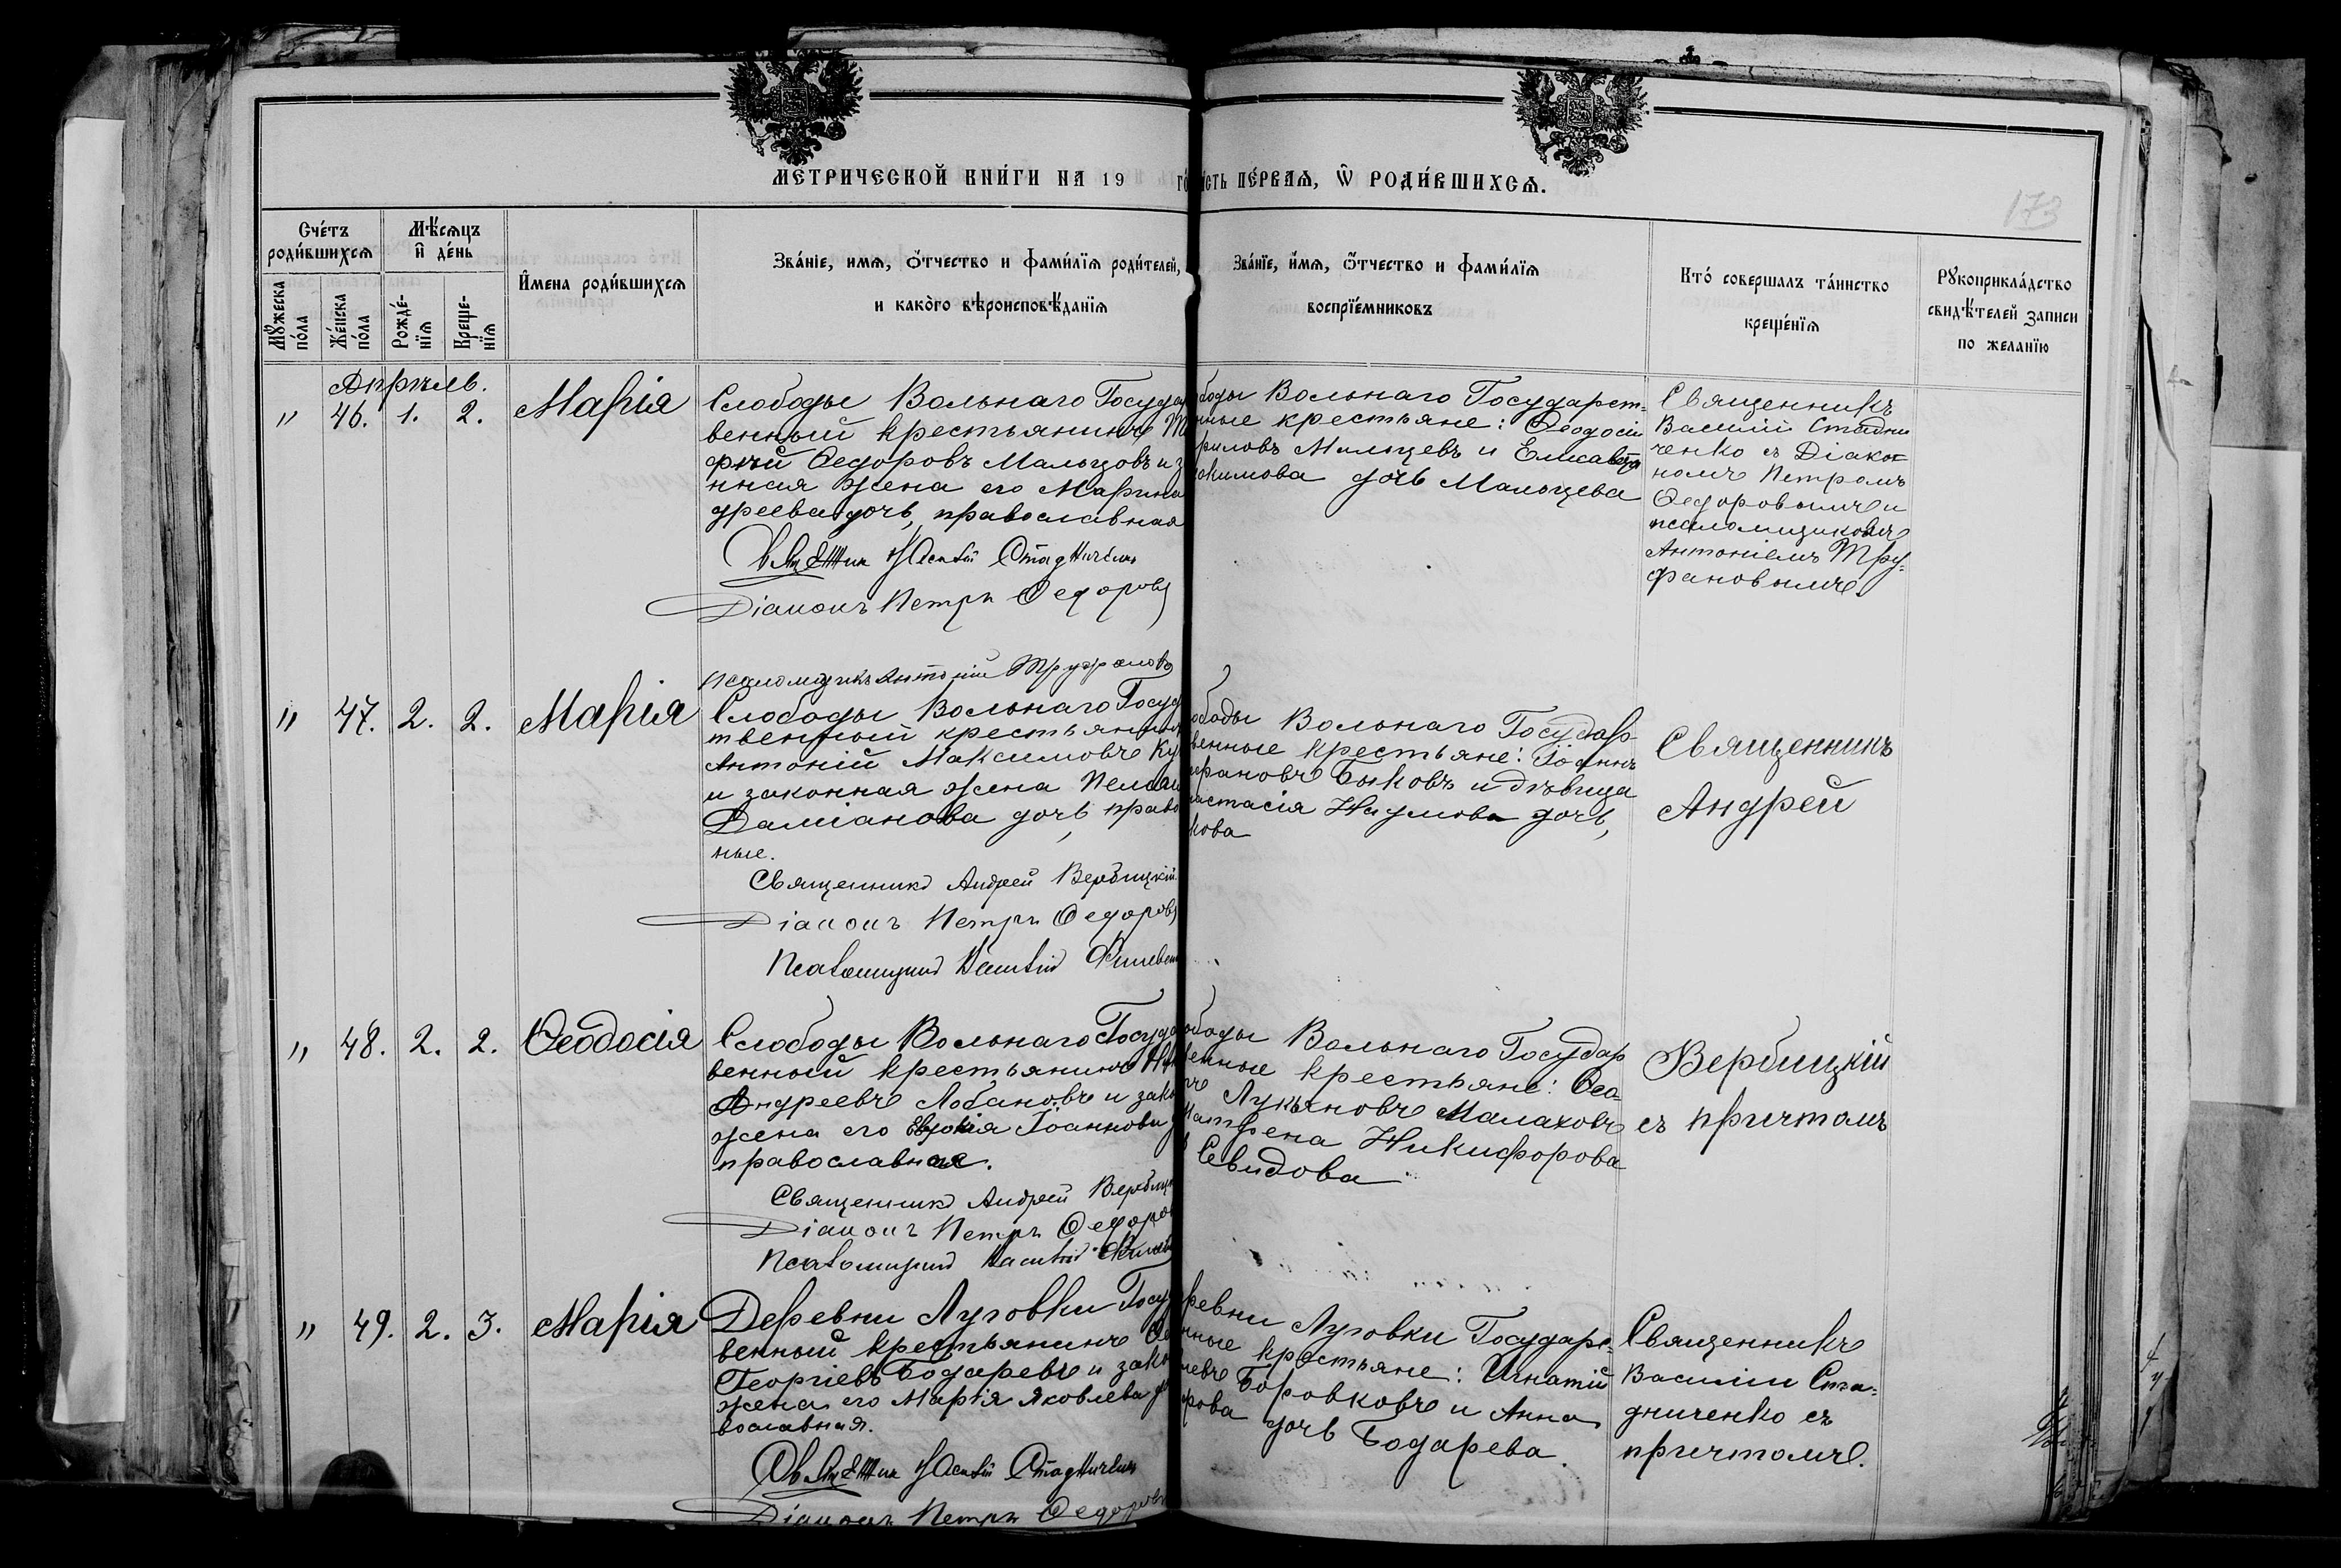 МЕТРИЧЕСКОЙ КНИ́ГИ НА 19 го
сть пе́рвая, ѿ роди́вшихся.
173
Сче́тъ роди́вшихся
Мѣ́сяцъ и́ де́нь
Му́жеска по́ла
Же́нска по́ла
Рожде́нїя
Креще́нїя
И́мена роди́вшихся
Зва́нїе, имя, ѻ́тчество и фами́лїя роди́телей,
и како́го вѣроисповѣ́данїя
Зва́нїе, и́мя, ѻ́тчество и фами́лїя
воспрїе́мниковъ
Кто́ совершалъ та́инство
креще́нїя
Рукоприкла́дство
свидѣ́телей записи
по желанїю
Апрѣль.
" 46. 1. 2. Марія
Слободы Вольнаго Госуда
венный крестьянинъ
фѣй Ѳедоровъ Мальцовъ и з
нная жена его Марина
дреева дочь, православная
Василій Стадниченко
Діаконъ Петръ Ѳедоровъ
Псаломщикъ Антоній Труфановъ
боды Вольнаго Государст-
нные крестьяне: Ѳеодосій
риловъ Мальцевъ и Елисавета
кимова дочь Мальцева
Священникъ
Василій Стадни
ченко съ Діако-
номъ Петромъ
Ѳедоровымъ и
псаломщикомъ
Антоніемъ Тру-
фановымъ.
" 47. 2. 2. Марія
Слободы Вольнаго Госуд
твенный крестьянинъ
Антоній Максимовъ Ку
и законная жена Пелаг
Даміанова дочь, право
ные.
Священникъ Андрей Вербицкій
Діаконъ Петръ Ѳедоровъ
Псаломщикъ Василій
ободы Вольнаго Государ-
венные крестьяне: Іоаннъ
фановъ Быковъ и дѣвица
настасія Наумова дочь,
кова
Священникъ
Андрей
" 48. 2. 2. Ѳеодосія
Слободы Вольнаго Госуда
венный крестьянинъ
Андреевъ Лобановъ и зако
жена его Евдокія Іоаннова
православная.
Священникъ Андрей Вербиц
Діаконъ Петръ Ѳедоров
Псаломщикъ Василій
ободы Вольнаго Государ
венные крестьяне: Ѳео-
ръ Лукьяновъ Малаховъ
Матрена Никифорова
Севидова
Вербицкій
съ причтомъ
" 49. 2. 3. Марія
Деревни Луговки Госу
венный крестьянинъ
Георгіевъ Бодаревъ и зако
жена его Марія Яковлева
вославная.
Василій Стадниченко
Діаконъ Петръ Ѳедоров
ревни Луговки Государс-
нные крестьяне: Игнатій
евъ Боровковъ и Анна
рова дочь Бодарева.
Священникъ
Василій Ста-
дниченко съ
причтомъ.